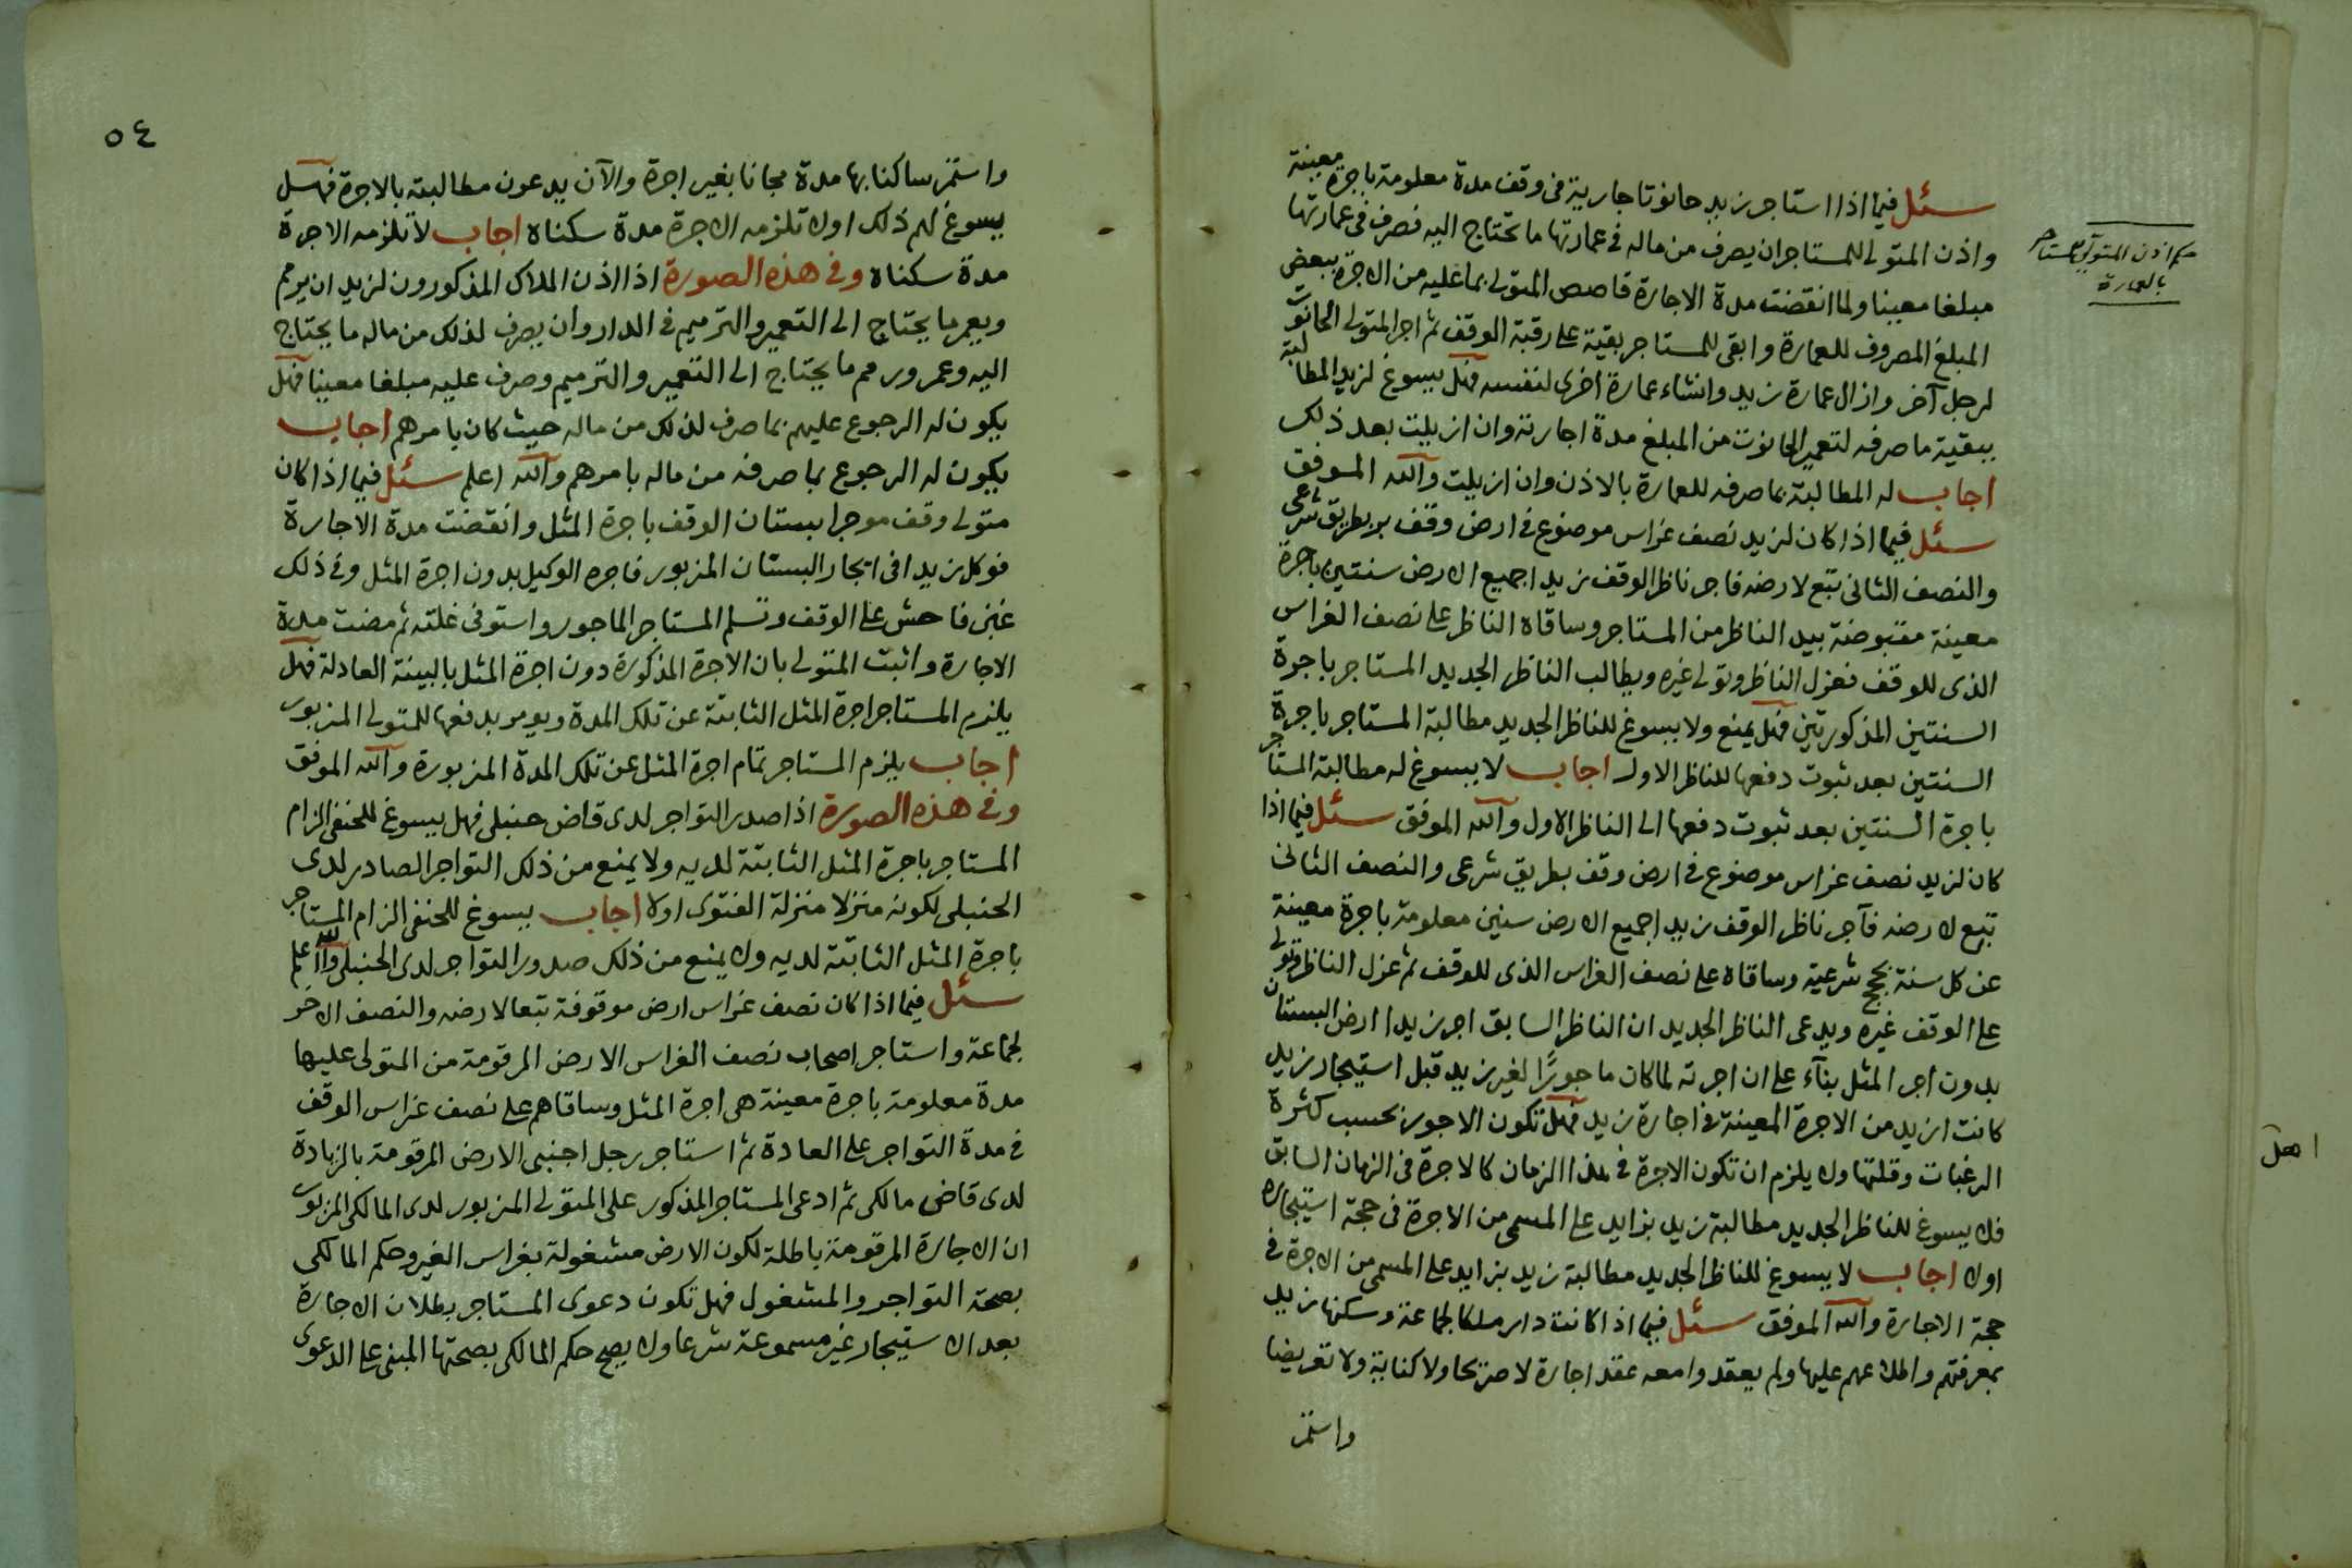 سئل فيما اذا استاجر زيد حانوتا جارية في وقف مدة معلومة باجرة معينة
واذن المتولى للمستاجر ان يصرف من ماله في عمارتها ما تحتاج اليه فصرف في عمارتها
مبلغا معينا ولما انقضت مدة الاجارة قاصص المتولى بما عليه من الاجرة ببعض
المبلغ المصروف للعمارة وابقى للمستاجر بقية على رقبة الوقف ثم اجر المتولى الحانوت
لرجل آخر وازال عمارة زيد وانشاء عمارة اخرى لنفسه فهل يسوغ لزيد المطالبة
ببقية ما صرفه لتعمير الحانوت من المبلغ مدة اجارته وان ازيلت بعد ذلك
اجاب له المطالبة بما صرفه للعمارة بالاذن وان ازيلت والله الموفق
سئل فيما اذا كان لزيد نصف غراس موضوع في ارض وقف بر بطريق شرعي
والنصف الثاني تبع لارضه فاجر ناظر الوقف زيدا جميع الارض سنتين باجرة
معينة مقبوضة بيد الناظر من المستاجر وساقاه الناظر على نصف الغراس
الذى للوقف فعزل الناظر وتولى غيره ويطالب الناظر الجديد المستاجر باجرة
السنتين المذكورتين فهل يمنع ولا يسوغ للناظر الجديد مطالبة المستاجر باجرة
السنتين بعد ثبوت دفعها للناظر الاول اجاب لا يسوغ له مطالبة المستاجر
باجرة السنتين بعد ثبوت دفعها الى الناظر الاول والله الموفق سئل فيما اذا
كان لزيد نصف غراس موضوع في ارض وقف بطريق شرعى والنصف الثاني
تبع لارضه فآجر ناظر الوقف زيدا جميع الارض سنين معلومة باجرة معينة
عن كل سنة بحجج شرعية وساقاه على نصف الغراس الذى للوقف ثم عزل الناظر وتولى
على الوقف غيره ويدعى الناظر الجديد ان الناظر السابق اجر زيدا ارض البستان
بدون اجر المثل بنآء على ان اجرته لما كان ماجورًا لغير زيد قبل استيجار زيد
كانت ازيد من الاجرة المعينة في اجارة زيد فهل تكون الاجور بحسب كثرة
الرغبات وقلتها ولا يلزم ان تكون الاجرة في هذا الزمان كالاجرة في الزمان السابق
فلا يسوغ للناظر الجديد مطالبة زيد بزايد على المسمى من الاجرة في حجة استيجاره
اولا اجاب لا يسوغ للناظر الجديد مطالبة زيد بزايد على المسمى من الاجرة في
حجة الاجارة والله الموفق سئل فيما اذا كانت دار ملكا لجماعة وسكنها زيد
بمعرفتهم واطلاعهم عليها ولم يعقدوا معه عقد اجارة لا صريحا ولا كناية ولا تعريضا
واستمر
اذن المتولى للمستاجر
بالعمارة
٥٤
واستمر ساكنا بها مدة مجانا بغير اجرة والآن يدعون مطالبته بالاجرة فهل
يسوغ لهم ذلك اولا تلزمه الاجرة مدة سكناه اجاب لا تلزمه الاجرة
مدة سكناه وفي هذه الصورة اذا اذن الملاك المذكورون لزيد ان يرمم
ويعمر ما يحتاج الى التعمير والترميم في الدار وان يصرف لذلك من ماله ما يحتاج
اليه وعمر ورمم ما يحتاج الى التعمير والترميم وصرف عليه مبلغا معينا فهل
يكون له الرجوع عليهم بما صرف لذلك من ماله حيث كان بامرهم اجاب
يكون له الرجوع بما صرفه من ماله بامرهم والله اعلم سئل فيما اذا كان
متولى وقف موجرا بستان الوقف باجرة المثل وانقضت مدة الاجارة
فوكل زيدا في ايجار البستان المزبور فاجره الوكيل بدون اجرة المثل وفي ذلك
غبن فاحش على الوقف وتسلم المستاجر الماجور واستوفى غلته ثم مضت مدة
الاجارة واثبت المتولى بان الاجرة المذكورة دون اجرة المثل بالبينة العادلة فهل
يلزم المستاجر اجرة المثل الثابتة عن تلك المدة ويومر بدفعها للمتولى المزبور
اجاب يلزم المستاجر تمام اجرة المثل عن تلك المدة المزبورة والله الموفق
وفي هذه الصورة اذا صدر التواجر لدى قاض حنبلى فهل يسوغ للحنفى الزام
المستاجر باجرة المثل الثابتة لديه ولا يمنع من ذلك التواجر الصادر لدى
الحنبلى لكونه منزلا منزلة الفتوى اولا اجاب يسوغ للحنفى الزام المستاجر
باجرة المثل الثابتة لديه ولا يمنع من ذلك صدور التواجر لدى الحنبلى والله اعلم
سئل فيما اذا كان نصف غراس ارض موقوفة تبعا لارضه والنصف الاخر
لجماعة واستاجر اصحاب نصف الغراس الارض المرقومة من المتولى عليها
مدة معلومة باجرة معينة هى اجرة المثل وساقاهم على نصف غراس الوقف
في مدة التواجر على العادة ثم استاجر رجل اجنبى الارض المرقومة بالزيادة
لدى قاض مالكى ثم ادعى المستاجر المذكور على المتولى المزبور لدى المالكى المزبور
ان الاجارة المرقومة باطلة لكون الارض مشغولة بغراس الغير وحكم المالكى
بصحة التواجر والمشغول فهل تكون دعوى المستاجر بطلان الاجارة
بعد الاستيجار غير مسموعة شرعا ولا يصح حكم المالكى بصحتها المبنى على الدعوى